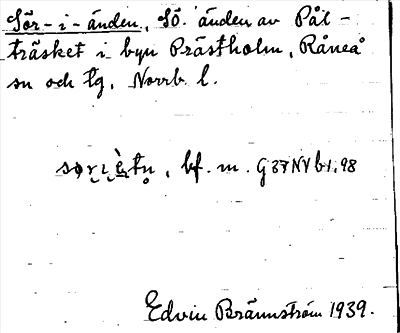 Sör-i-änden, SÖ. änden av Pål-
träsket i byn Prästholm, Råneå
sn och tg, Norrb l.
bf. m. G37NVb1.98
Edvin Brännström 1939.